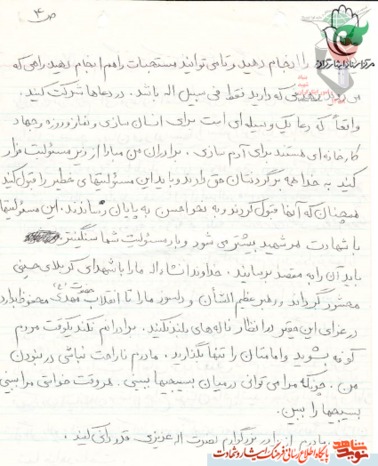 ص ۴
را انجام دهید و تا می توانید مستحبات را هم انجام دهید راهی که
که دارید فقط فی سبیل اله باشد. در دعاها شرکت کنید.
واقعاً که دعا یک وسیله ای است برای انسان سازی و نماز و روزه و جهاد
کارخانه ای هستند برای آدم سازی. برادران من مبادا از زیر مسئولیت فرار
کنید به خدا همه بر گردنتان حق دارند و باید این مسئولیتهای خطیر را قبول کنید
همچنان که آنها قبول کردند و به نحو احسن به پایان رساندند. این مسئولیتها
با شهادت هر شهید بیشتر می شود و بار مسئولیت شما سنگینتر
باید آن را به مقصد برسانند. خداوند انشاء اله ما را با شهدای کربلای حسینی
محشور گرداند و رهبر عظیم الشأن و دلسوز ما را تا انقلاب حضرت مهدی (عج) محفوظ بدارد
در عزای این حقیر در انظار ناله های بلند نکنید. برادرانم نکند یکوقت مردم
کوفه بشوید و امامتان را تنها بگذارید. مادرم ناراحت نباشی در نبودن
من. چونکه مرا می توانی در میان بسیجیها ببینی. هر وقت خواستی مرا ببینی
بسیجیها را ببین.
مادرم از برادر بزرگوارم نصرت اله عزیزی قدردانی کنید.
مرکز اسناد ایثارگران
نوید شاهد
پایگاه اطلاع رسانی فرهنگ ایثار و شهادت